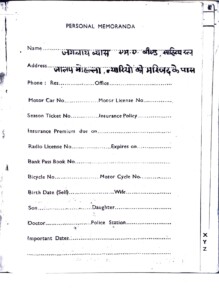 PERSONAL MEMORANDA
Name जगन्नाथ व्यास एम.ए.
Address मोहल्ला, के पास
Phone : Res. Office
Motor Car No. Motor License No.
Season Ticket No. Insurance Policy
Insurance Premium due on
Radio License No. Expires on
Bank Pass Book No.
Bicycle No. Motor Cycle No.
Birth Date (Self) Wife
Son Daughter
Doctor Police Station
Important Dates
X
Y
Z